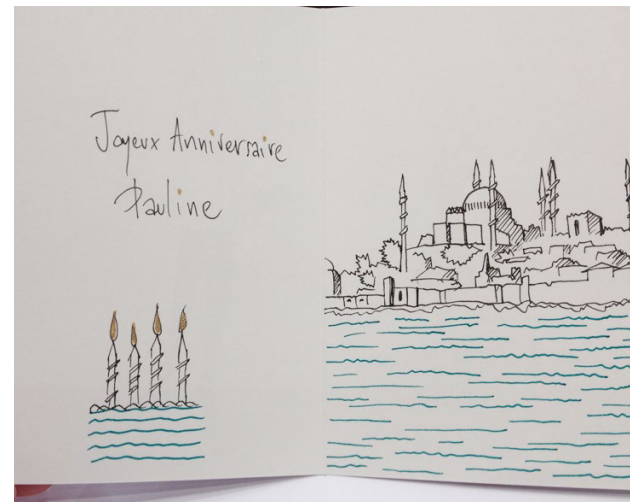 Joyeux Anniversaire
Pauline